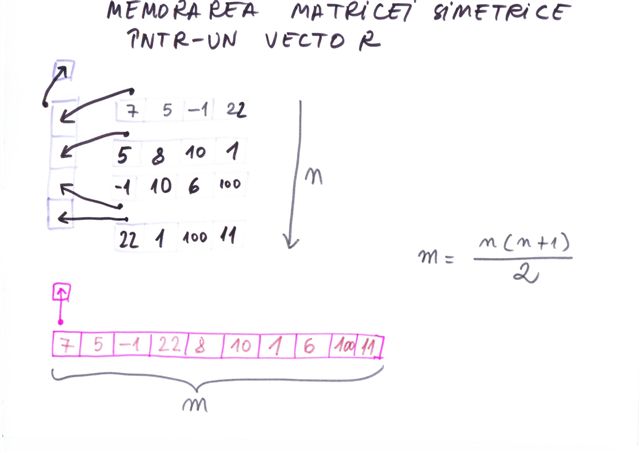 MEMORAREA MATRICEI SIMETRICE
ÎNTR-UN VECTOR
7 5 -1 22
5 8 10 1
-1 10 6 100
22 1 100 11
n
m = n(n+1)
2
7 5 -1 22 8 10 1 6 100 11
m